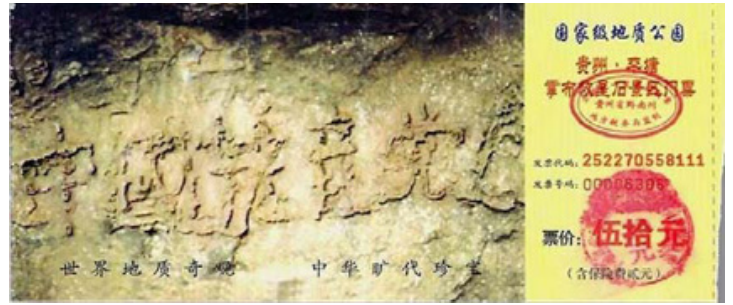 中国共产党
世界地质奇观 中华旷代珍宝
国家级地质公园
贵州·平塘
掌布救星石景区门票
贵州省黔南州
发票代码: 252270558111
发票号码:
票价: 伍拾元
(含保险费贰元)